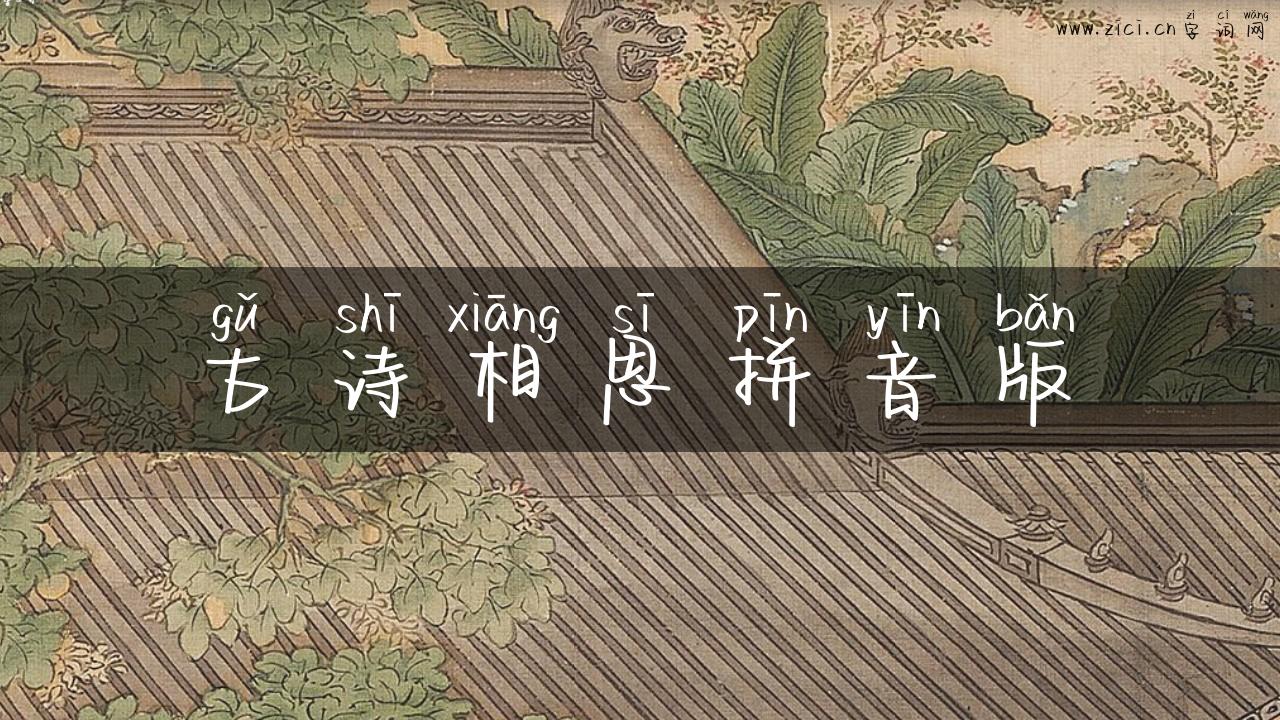 zì cí wǎng
www.zici.cn 字 词 网
gǔ shī xiāng sī pīn yīn bǎn
古 诗 相 思 拼 音 版